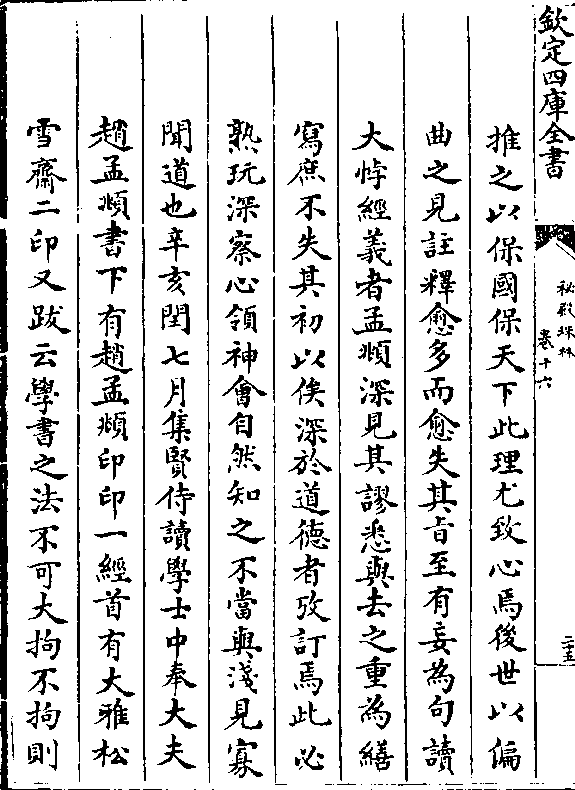 欽定四庫全書
秘殿珠林
卷十六
二十五
推之以保國保天下此理尤致心焉後世以偏
曲之見註釋愈多而愈失其㫖至有妄為句讀
大悖經義者孟頫深見其謬悉與去之重為繕
寫庶不失其初以俟深於道德者攷訂焉此必
熟玩深察心領神會自然知之不當與淺見寡
聞道也辛亥閏七月集賢侍讀學士中奉大夫
趙孟頫書下有趙孟頫印印一經首有大雅松
雪齋二印又跋云學書之法不可大拘不拘則